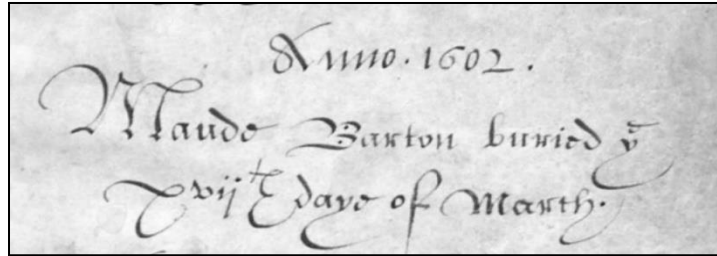 Anno. 1602.
Maude Barton buried yͤ
xvijth daye of March.